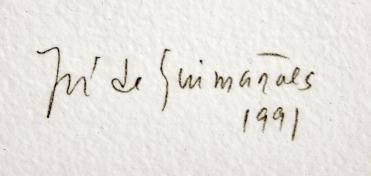 José de Guimarães
1991